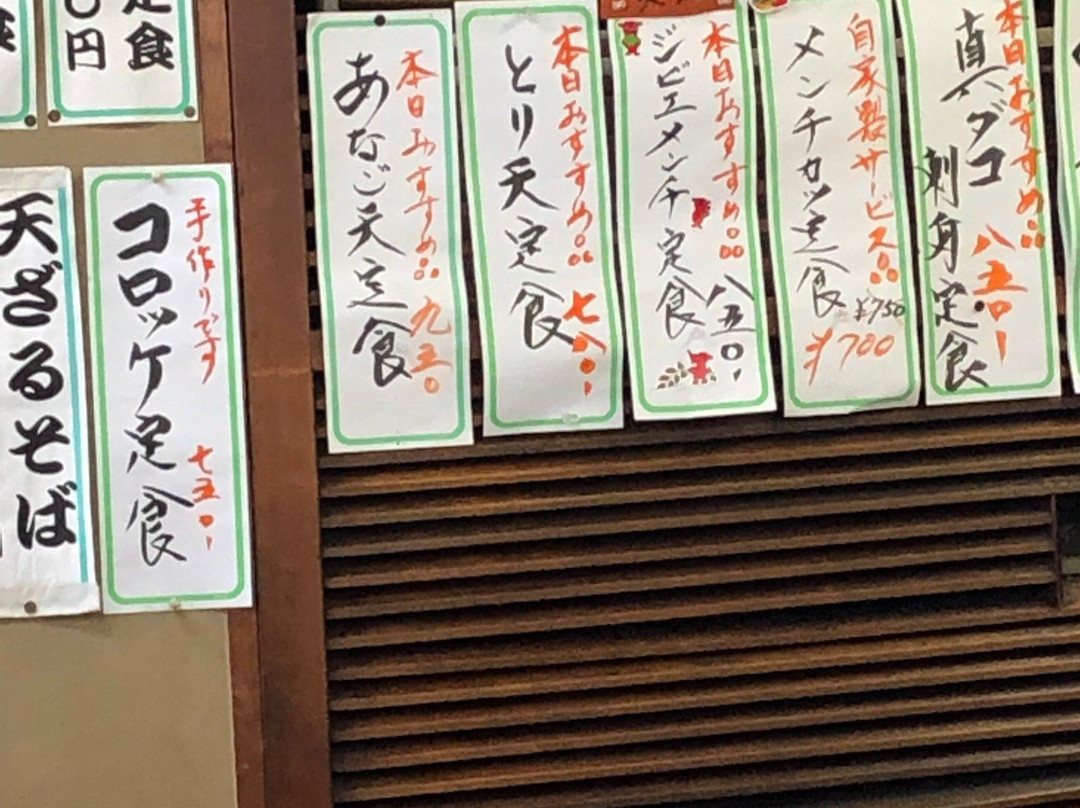 本日おすすめ品 八五〇ー
真ダコ刺身定食
自家製サービス品
メンチカツ定食 ¥750
¥700
本日おすすめ品
ジビエメンチ定食 八五〇ー
本日おすすめ品
とり天定食
本日おすすめ品 九五〇
あなご天定食
定食
円
手作りです 七五〇ー
コロッケ定食
天ざるそば